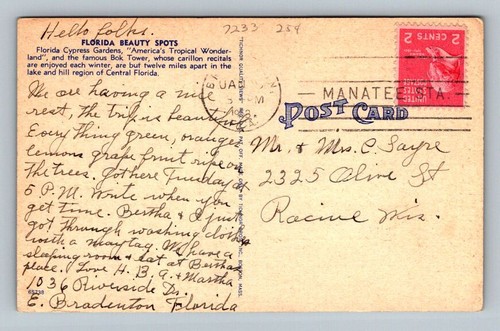 Hello folks.
7233 254
FLORIDA BEAUTY SPOTS
Florida Cypress Gardens, "America's Tropical Wonder-
land", and the famous Bok Tower, whose carillon recitals
are enjoyed each winter, are but twelve miles apart in the
lake and hill region of Central Florida.
We are having a nice
rest, The trip is beautiful
Everything green, oranges
lemons grape fruit ripe on
the trees. Got here Tuesday at
5 P.M. Write when you
get time. Bertha & I just
got through washing clothes
with a maytag. We have a
sleeping room & eat at Berthas
place. Love H. B. A. & Martha
1036 Riverside Dr.
E. Bradenton Florida
65738
2 CENTS 2
UNITED STATES
POSTAGE
MANATEE STA.
POST CARD
Mr. & Mrs. C. Sayre
2325 Olive St
Racine Wis.